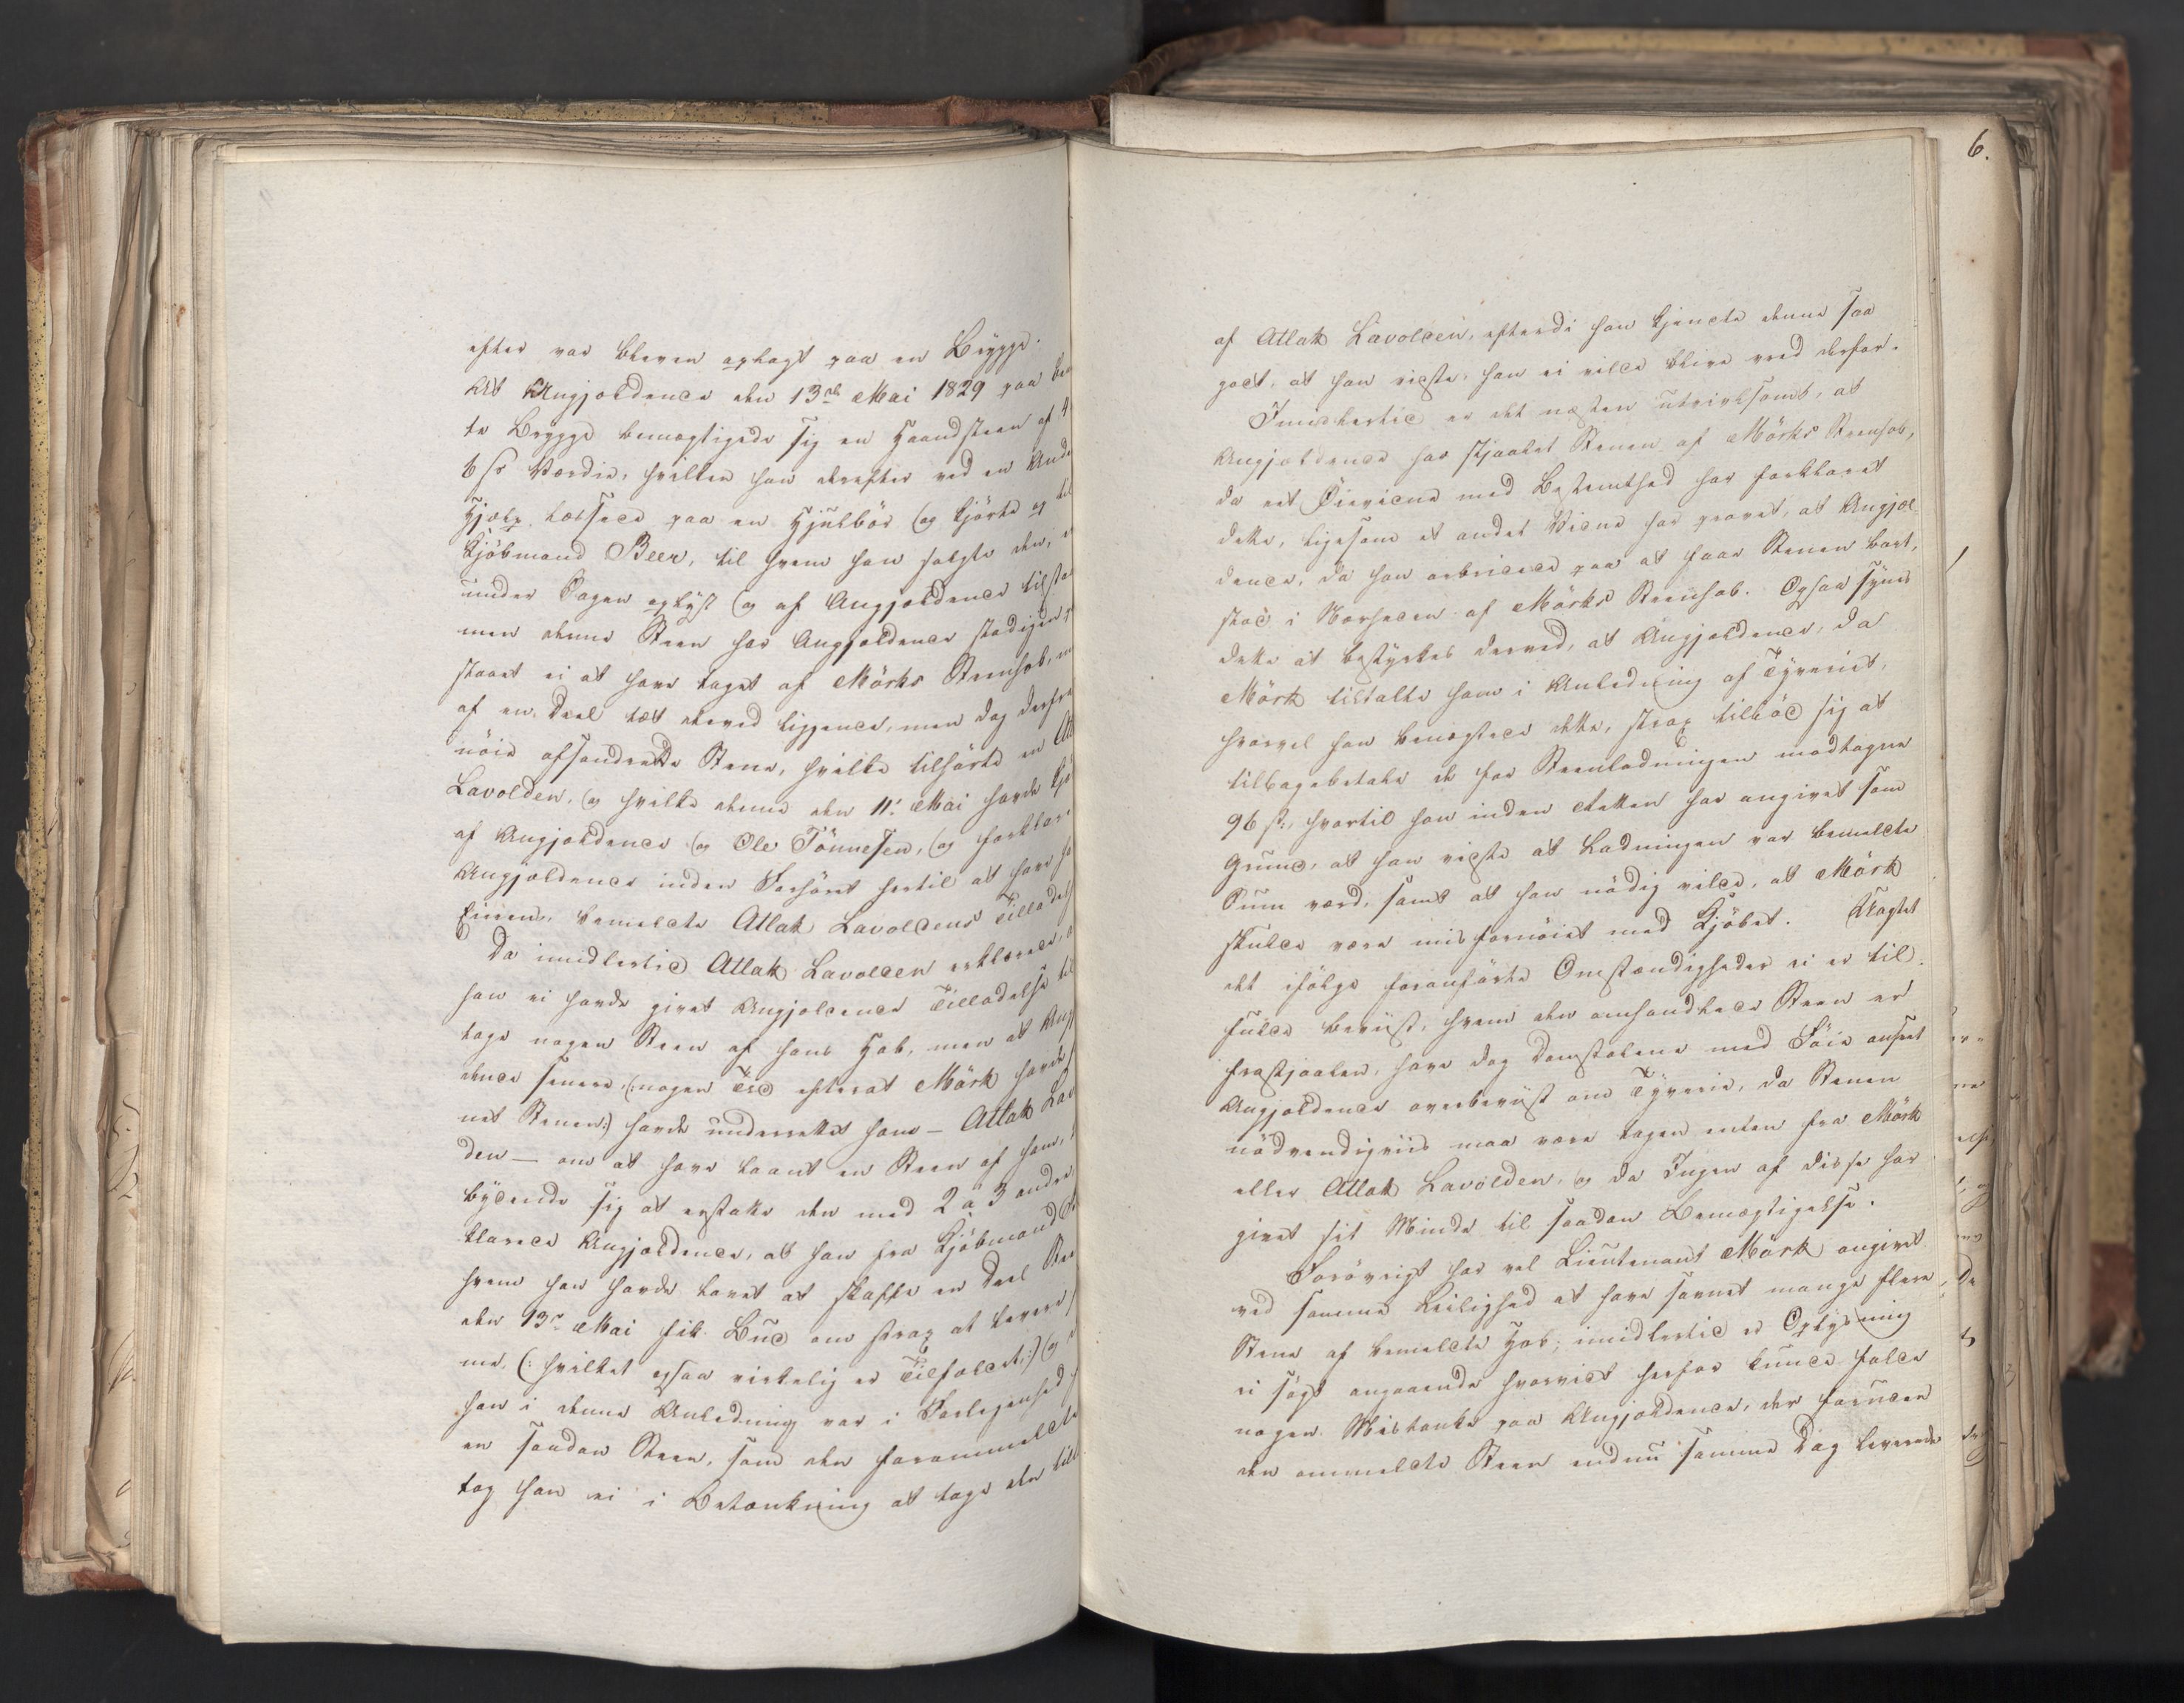 efter var bleven oplagt paa en Brygge.
At Angjældende den 13de Mai 1829 paa
te Brygge bemægtigede sig en Haandsteen af 4
6 ſs Værdie, hvilken han derefter ved en And
Hjælp læssede paa en Hjulbör og kjörte op til
Kjöbmand Beer, til hvem han solgte den, e
under Sagen oplyst og af Angjældende tilsta
men denne Steen har Angjældende stadigen
staaet ei at have taget af Mörks Steenhob, m
af en Deel tæt derved liggende, men dog derfra
nöie afsondrede Stene, hvilke tilhörte en Atl
Lavolden, og hvilke denne den 11te Mai havde kjö
af Angjældende og Ole Tönnesen, og forklare
Angjældende inden Forhöret hertil at have
bemeldte Atlak Lavoldens Tilladels
Da imidlertid Atlak Lavolden erklærede,
han ei havde givet Angjældende Tilladelse til
tage nogen Steen af hans Hob, men at Angj
dende senere, (: nogen Tid efterat Mörk havde
net Stenen :) havde underrettet ham – Atlak Lavol
den – om at have laant en Steen af ham,
bydende sig at erstatte den med 2 a 3 andre
klarede Angjældende, at han fra Kjöbmand
hvem han havde lovet at skaffe en Deel Ste
den 13de Mai fik Bud om strax at levere
ne, (: hvilket ogsaa virkelig er Tilfældet :) og
han i denne Anledning var i Forlegenhed
en saadan Steen, som den forommeldte
tog han ei i Betænkning at tage den til
6.
af Atlak Lavolden, efterdi han kjendte denne saa
godt, at han vidste, han ei vilde blive vred derfor.
Imidlertid er det næsten utvivlsomt, at
Angjældende har stjaalet Stenen af Mörks Steenhob,
da eet Öievidne med Bestemthed har forklaret
dette, ligesom et andet Vidne har provet, at Angjæl-
dende, da han arbeidede paa at faae Stenen bort,
stod i Nærheden af Mörks Steenhob. Ogsaa synes
dette at bestyrkes derved, at Angjældende, da
Mörk tiltalte ham i Anledning af Tyveriet,
hvorvel han benægtede dette, strax tilböd sig at
tilbagebetale de for Steenladningen modtagne
96 ſs, hvortil han inden Retten har angivet som
Grund, at han vidste at Ladningen var bemeldte
Sum værd, samt at han nödig vilde, at Mörk
skulde være misfornöiet med Kjöbet. Uagtet
det ifölge foranförte Omstændigheder ei er til
fulde beviist, hvem den omhandlede Steen er
frastjaalen, have dog Domstolene med Föie anseet
Angjældende overbeviist om Tyverie, da Stenen
nödvendigviis maa være tagen enten fra Mörk
eller Atlak Lavolden, og da Ingen af disse har
givet sit Minde til saadan Bemægtigelse.
Forövrigt har vel Lieutenant Mörk angivet
ved samme Leilighed at have savnet mange flere
Stene af bemeldte Hob; imidlertid er Oplysning
ei sögt angaaende hvorvidt herfor kunde falde
nogen Mistanke paa Angjældende, der foruden
den ommeldte Steen endnu samme Dag leverede